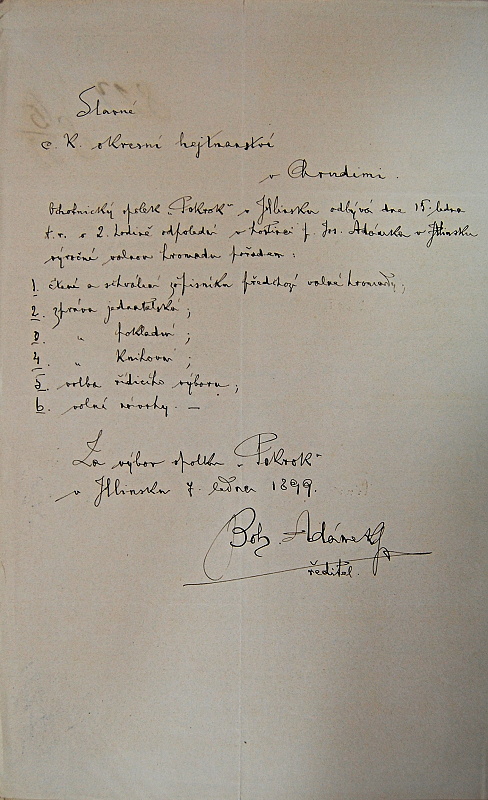 Slavné
c. k. okresní hejtmanství
v Chrudimi.
Ochotnický spolek „Pokrok“ v Hlinsku odbývá dne 15. ledna
t. r. o 2. hodině odpolední v hostinci p. Jos. Adámka v Hlinsku
výroční valnou hromadu pořadem:
1. čtení a schválení zápisníku předchozí valné hromady;
2. zpráva jednatelská;
3. „ pokladní;
4. „ knihovní;
5. volba řídícího výboru;
6. volné návrhy. —
Za výbor spolku „Pokrok“
v Hlinsku 7. ledna 1899.
Boh. Adámek
ředitel.